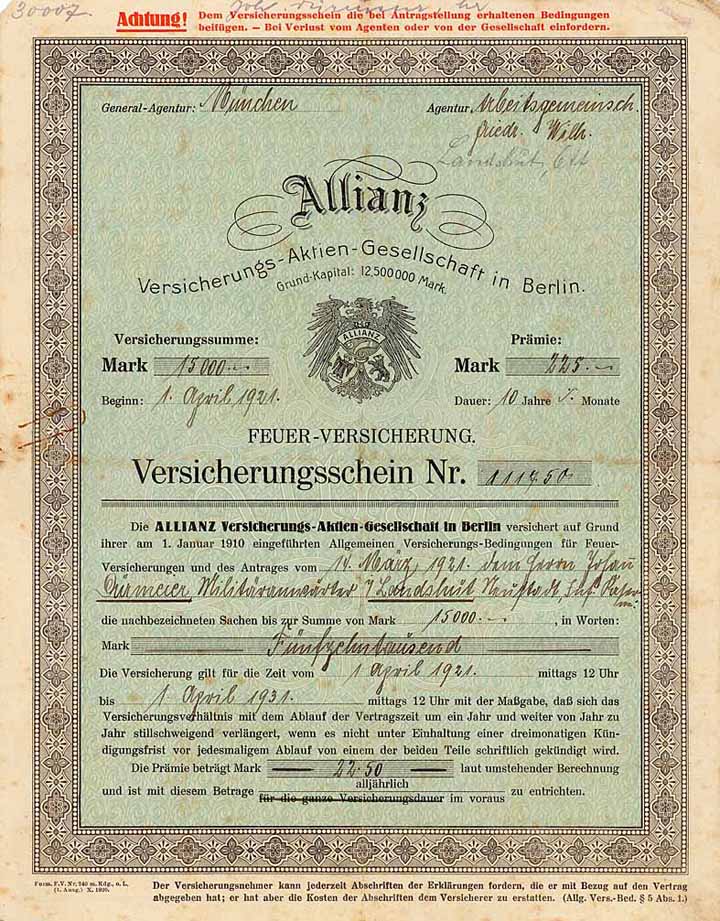 30007
Achtung! Dem Versicherungsschein die bei Antragstellung erhaltenen Bedingungen
beifügen. — Bei Verlust vom Agenten oder von der Gesellschaft einfordern.
General-Agentur: München
Agentur Arbeitsgemeinsch.
Friedr. Wilh.
Landshut,
Allianz
Versicherungs-Aktien-Gesellschaft in Berlin.
Grund-Kapital: 12,500000 Mark.
ALLIANZ
Versicherungssumme: Prämie:
Mark 15000.- Mark 225.-
Beginn: 1. April 1921. Dauer: 10 Jahre Monate
FEUER-VERSICHERUNG.
Versicherungsschein Nr. 111750
Die ALLIANZ Versicherungs-Aktien-Gesellschaft in Berlin versichert auf Grund
ihrer am 1. Januar 1910 eingeführten Allgemeinen Versicherungs-Bedingungen für Feuer-
Versicherungen und des Antrages vom 14. März 1921. dem Herrn Johann
Dürmeier Militäranwärter Landshut Neustadt,
die nachbezeichneten Sachen bis zur Summe von Mark 15000.-, in Worten:
Mark Fünfzehntausend
Die Versicherung gilt für die Zeit vom 1 April 1921. mittags 12 Uhr
bis 1 April 1931. mittags 12 Uhr mit der Maßgabe, daß sich das
Versicherungsverhältnis mit dem Ablauf der Vertragszeit um ein Jahr und weiter von Jahr zu
Jahr stillschweigend verlängert, wenn es nicht unter Einhaltung einer dreimonatigen Kün-
digungsfrist vor jedesmaligem Ablauf von einem der beiden Teile schriftlich gekündigt wird.
Die Prämie beträgt Mark 22.50 laut umstehender Berechnung
und ist mit diesem Betrage alljährlich für die ganze Versicherungsdauer im voraus zu entrichten.
Form. F.V. Nr. 240 m. Kdg., o. L.
(1. Ausg.) X. 1920.
Der Versicherungsnehmer kann jederzeit Abschriften der Erklärungen fordern, die er mit Bezug auf den Vertrag
abgegeben hat; er hat aber die Kosten der Abschriften dem Versicherer zu erstatten. (Allg. Vers.-Bed. § 5 Abs. 1.)